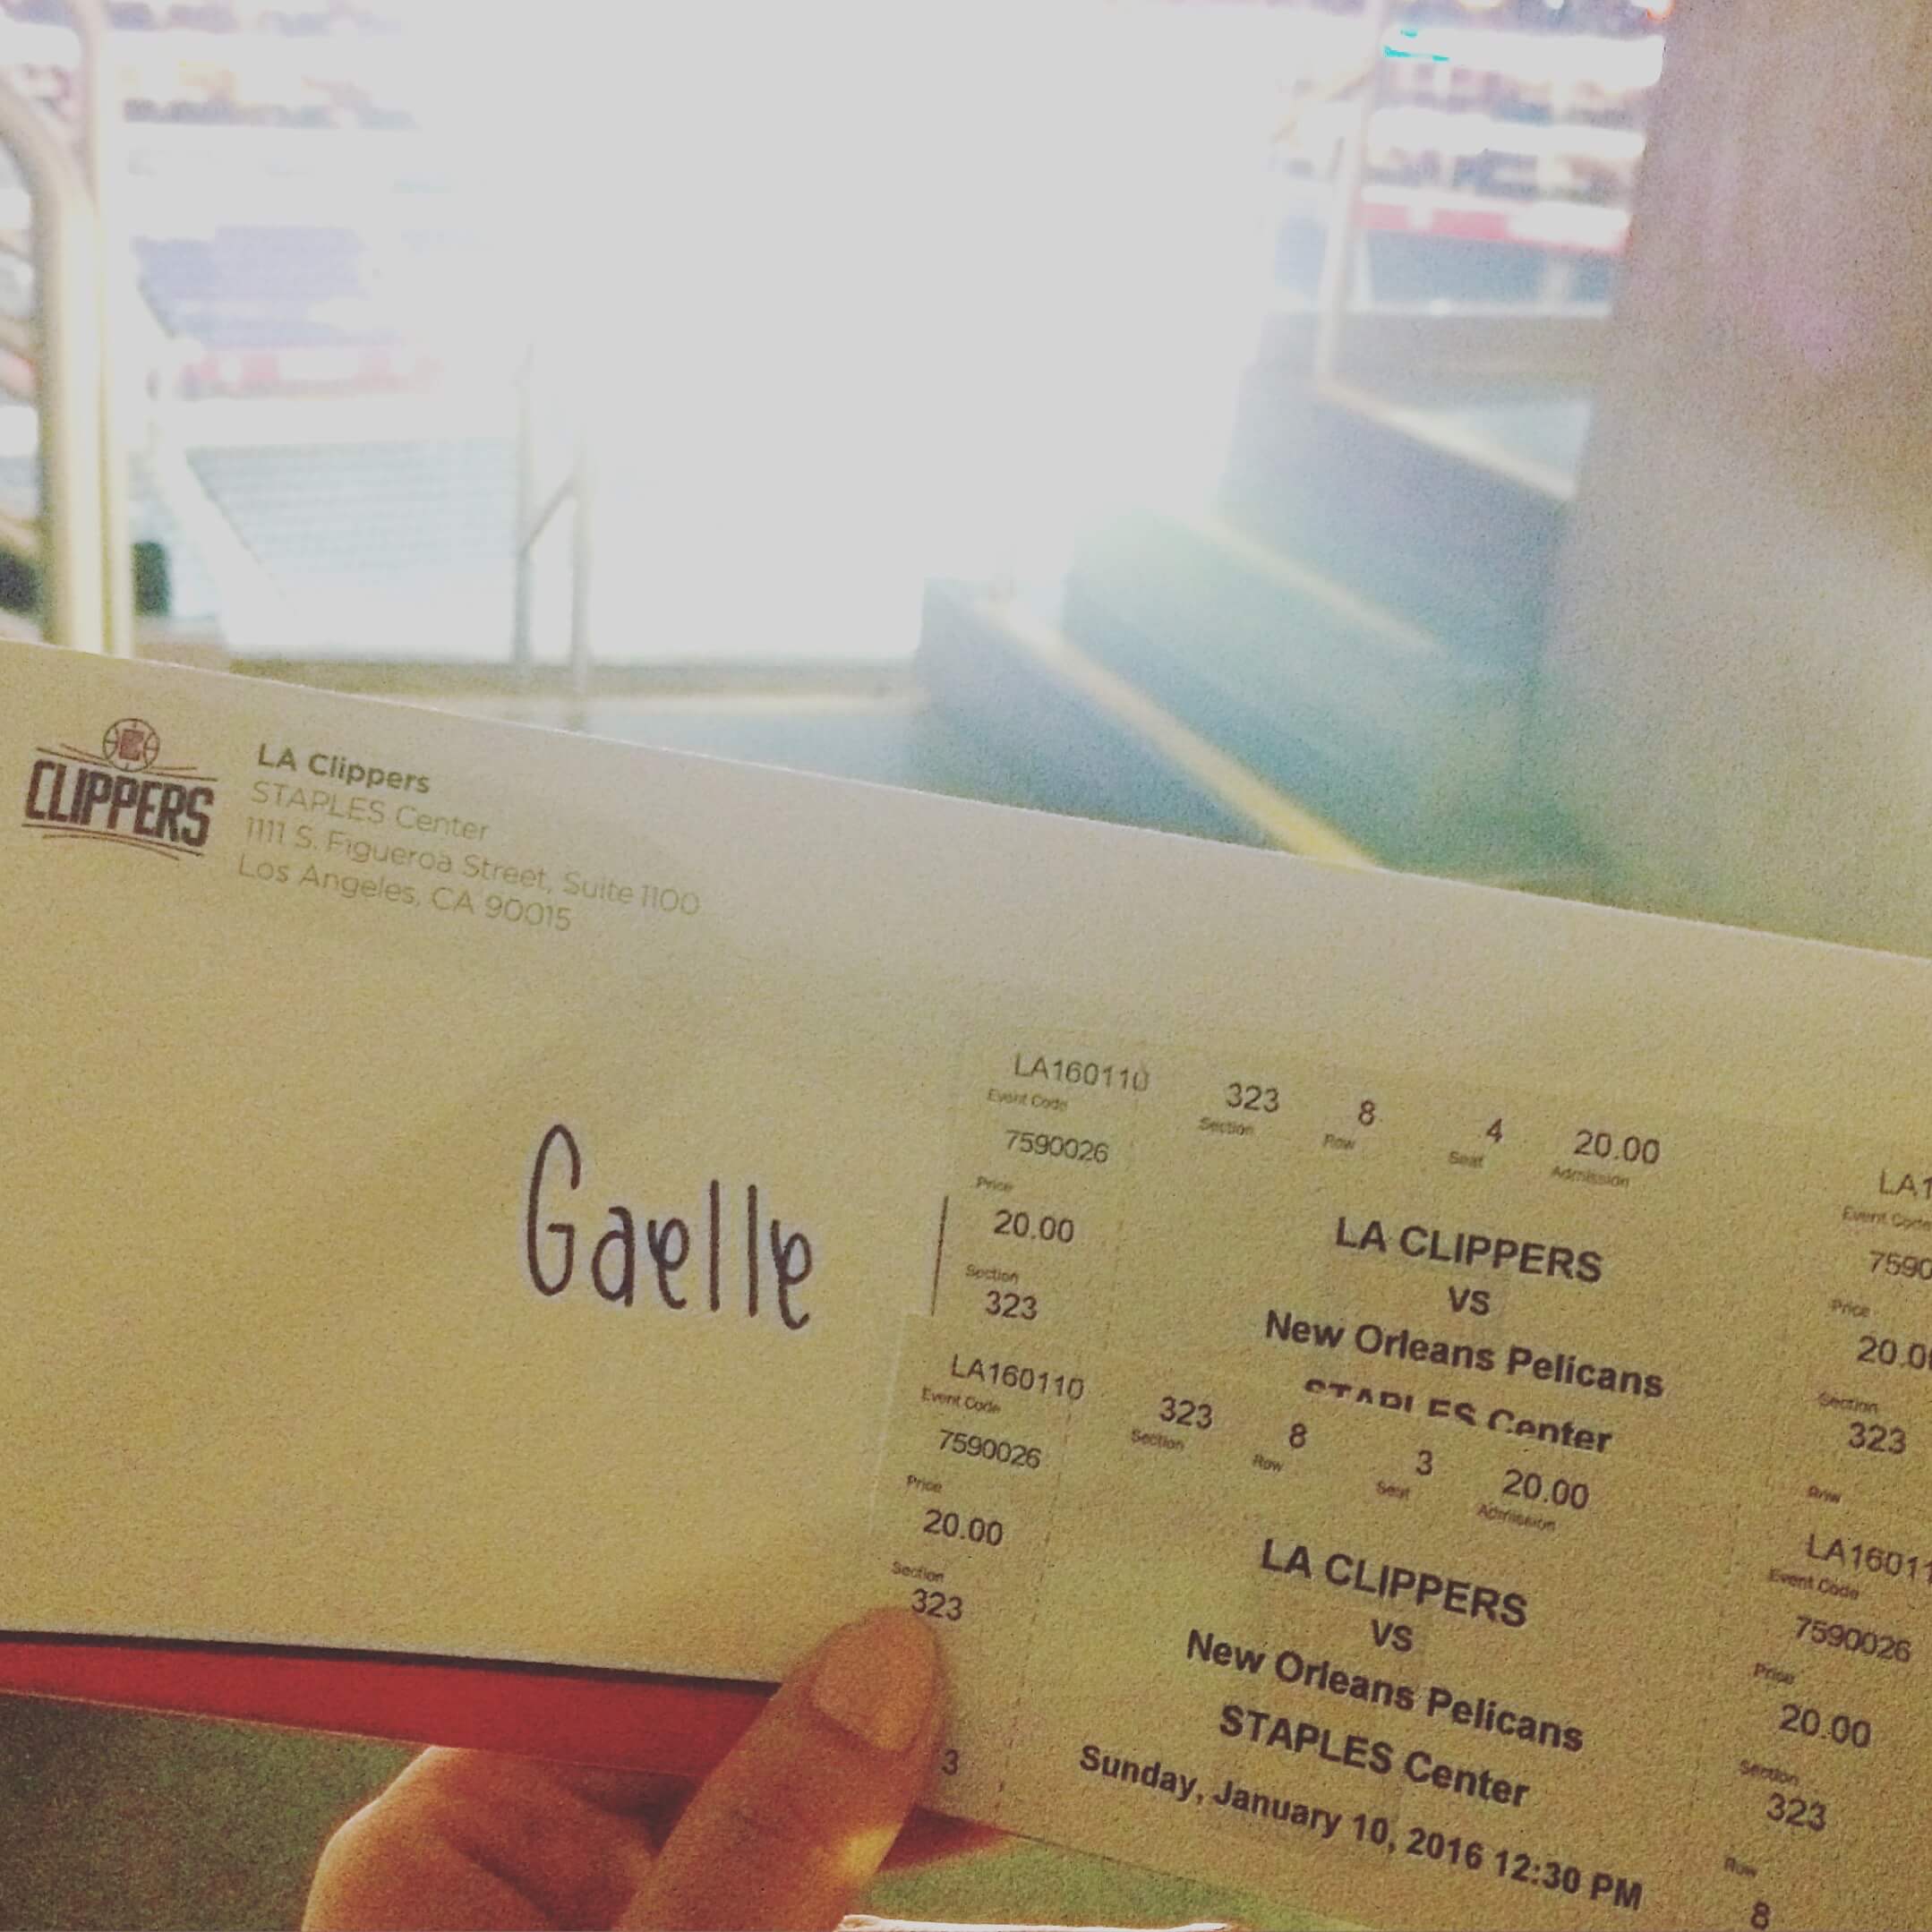 CLIPPERS
LA Clippers
STAPLES Center
1111 S. Figueroa Street, Suite 1100
Los Angeles, CA 90015
Gaelle
LA160110 323 8 4 20.00
Event Code Section Row Seat Admission
7590026
Price
20.00
Section
323
LA CLIPPERS
VS
New Orleans Pelicans
STAPLES Center
LA1
Event Code
7590
Price
20.0
Section
323
Row
LA160110 323 8 3 20.00
Event Code Section Row Seat Admission
7590026
Price
20.00
Section
323
3
LA CLIPPERS
VS
New Orleans Pelicans
STAPLES Center
Sunday, January 10, 2016 12:30 PM
LA16011
Event Code
7590026
Price
20.00
Section
323
Row
8